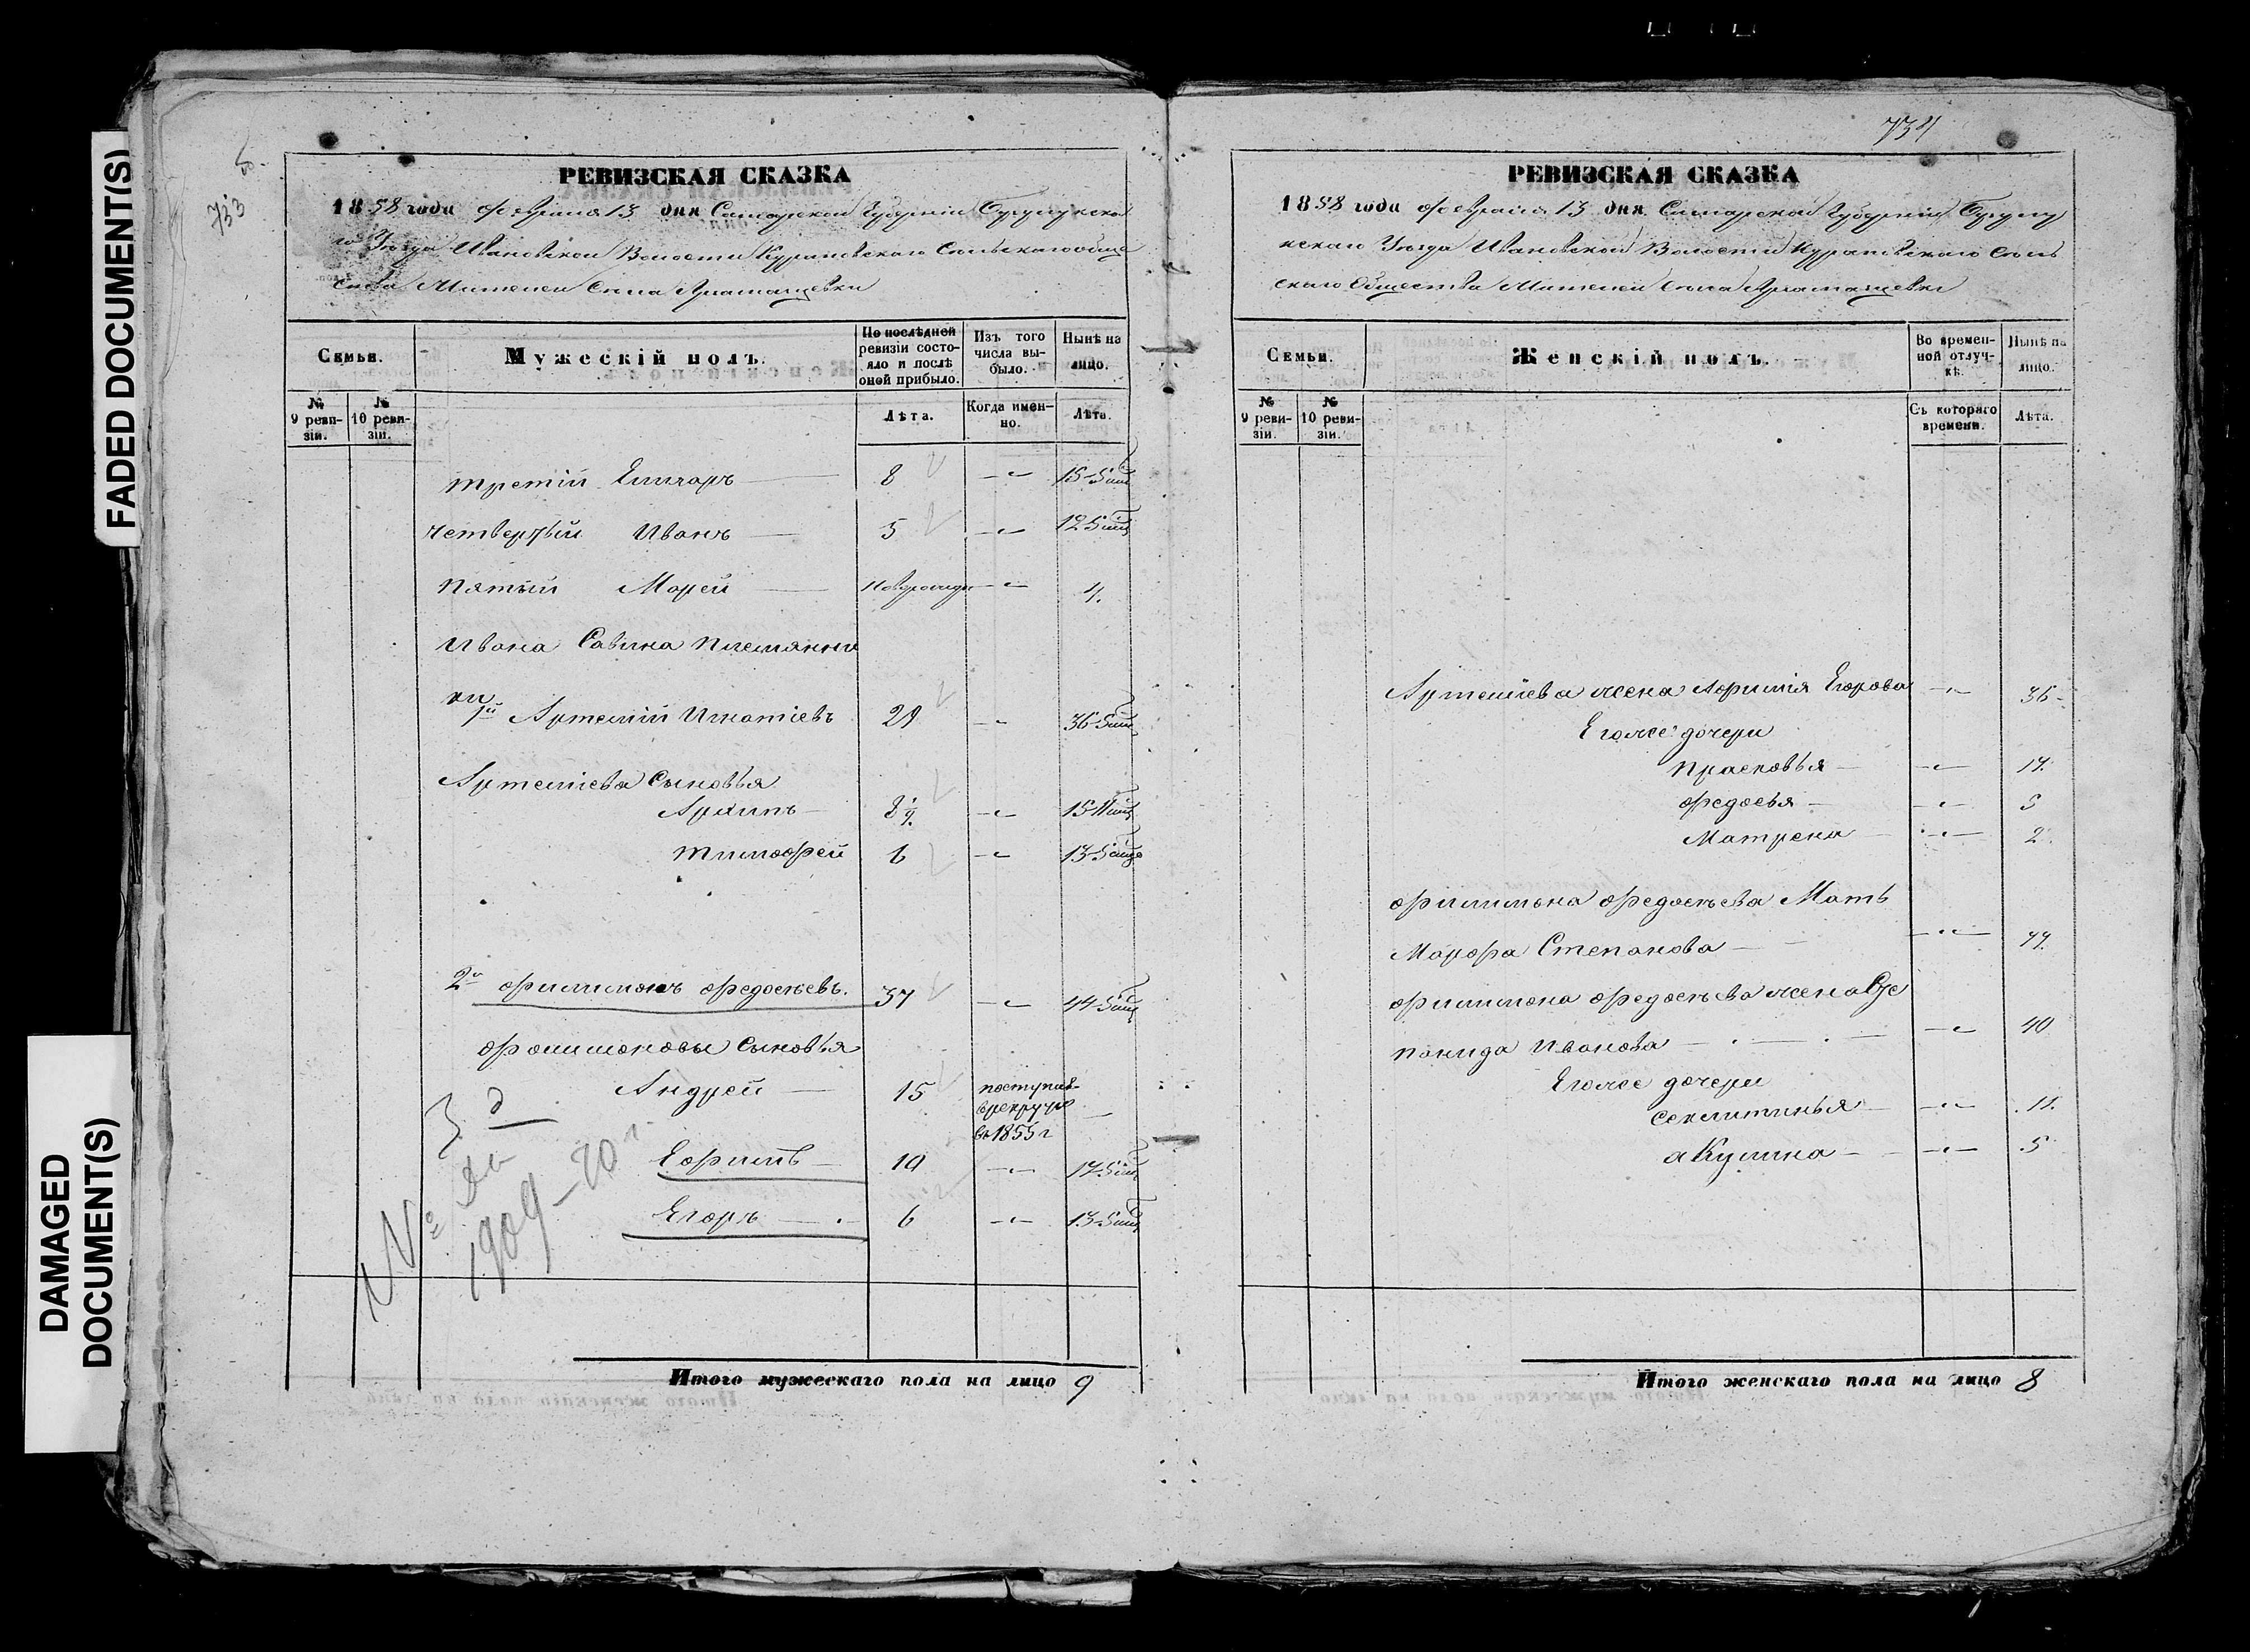 FADED DOCUMENT(S)
DAMAGED DOCUMENT(S)
733
РЕВИЗСКАЯ СКАЗКА
1858 года февраля 13 дня Самарской Губерніи Бузулукска
го Уѣзда Ивановской Волости Кураповскаго Сельскаго обще
ства Жителей Села
Семьи.
Мужескій полъ.
По послѣдней ревизіи состояло и послѣ оной прибыло.
Изъ того числа выбыло.
Нынѣ на лицо.
№ 9 ревизіи.
№ 10 ревизіи.
Лѣта.
Когда именно.
Лѣта.
третій 8 15
четвертый Иванъ 5 12
пятый Марей новорожде 4.
Ивана Савина племянни
ки
1й Артемій Игнатіевъ 29 36
Артеміева Сыновья
Архипъ 15
Тимофей 6 13
2й филимонъ федосѣевъ. 37 44
филимоновы Сыновья
Андрей 15 поступив. в рекруты въ 1855 г
Ефимъ 10 17
Егоръ 6 13
№
1909-20 г.
Итого мужескаго пола на лицо 9
734
РЕВИЗСКАЯ СКАЗКА
1858 года февраля 13 дня Самарской Губерніи Бузулу
кскаго Уѣзда Ивановской Волости Кураповскаго Сель
скаго Общества Жителей Села
Семьи.
Женскій полъ.
Во временной отлучкѣ.
Нынѣ на лицо.
№ 9 ревизіи.
№ 10 ревизіи.
Съ котораго времени.
Лѣта.
Артеміева жена Афимія Егорова 36
Егоже дочери
Прасковья 14.
федосья 5
Матрена 2.
филимона федосѣева Мать
Марфа Степанова
филимона федосѣева жена Сте
панида Иванова 40
Егоже дочери
Секлитинья 11.
акулина 5
Итого женскаго пола на лицо 8